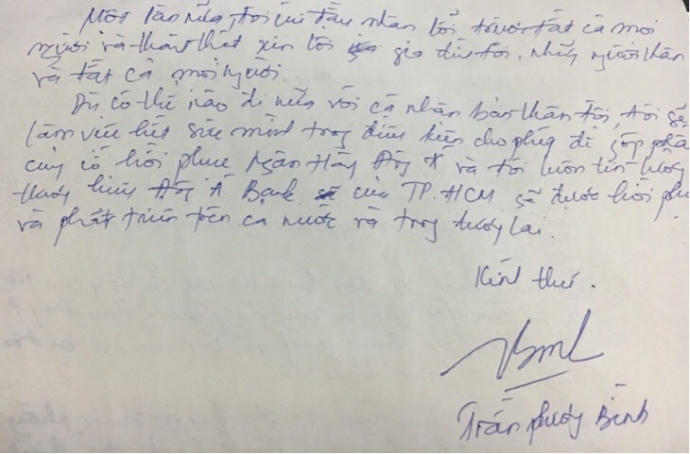 Một lần nữa, tôi cúi đầu nhận lỗi trước tất cả mọi
người và thành thật xin lỗi gia đình tôi, những người thân
và tất cả mọi người.
Dù có thế nào đi nữa với cá nhân bản thân tôi, tôi sẽ
làm việc hết sức mình trong điều kiện cho phép để góp phần
củng cố hồi phục Ngân Hàng Đông Á và tôi luôn tin tưởng
thương hiệu Đông Á Bank của TP. HCM sẽ được hồi phục
và phát triển trên cả nước và trong tương lai.
Kính thư.
Trần Phương Bình